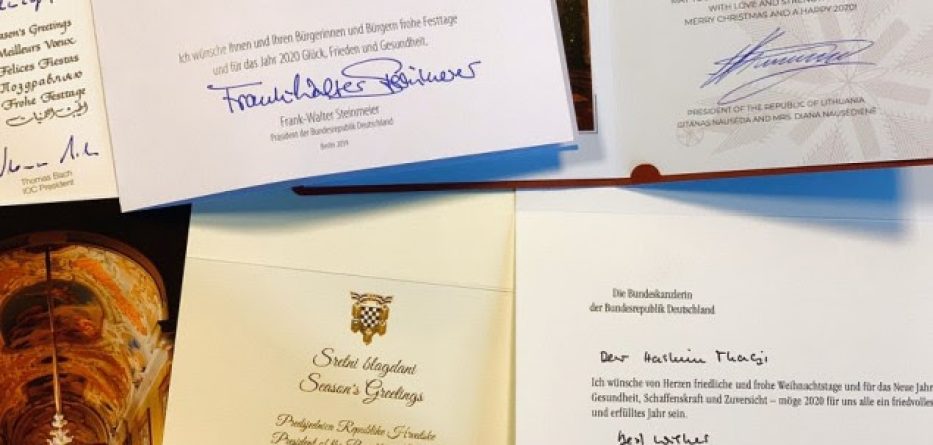 Season's Greetings
Meilleurs Vœux
Felices Fiestas
Поздравляю
Frohe Festtage
Thomas Bach
IOC President
Ich wünsche Ihnen und Ihren Bürgerinnen und Bürgern frohe Festtage
und für das Jahr 2020 Glück, Frieden und Gesundheit.
Frank-Walter Steinmeier
Frank-Walter Steinmeier
Präsident der Bundesrepublik Deutschland
Berlin 2019
WITH LOVE AND
MERRY CHRISTMAS AND A HAPPY 2020!
PRESIDENT OF THE REPUBLIC OF LITHUANIA
GITANAS NAUSĖDA AND MRS. DIANA NAUSĖDIENĖ
Sretni blagdani
Season's Greetings
Predsjednica Republike Hrvatske
President of the
Die Bundeskanzlerin
der Bundesrepublik Deutschland
Dear Hashim Thaçi
Ich wünsche von Herzen friedliche und frohe Weihnachtstage und für das Neue Jahr
Gesundheit, Schaffenskraft und Zuversicht – möge 2020 für uns alle ein friedvolles
und erfülltes Jahr sein.
Best wishes